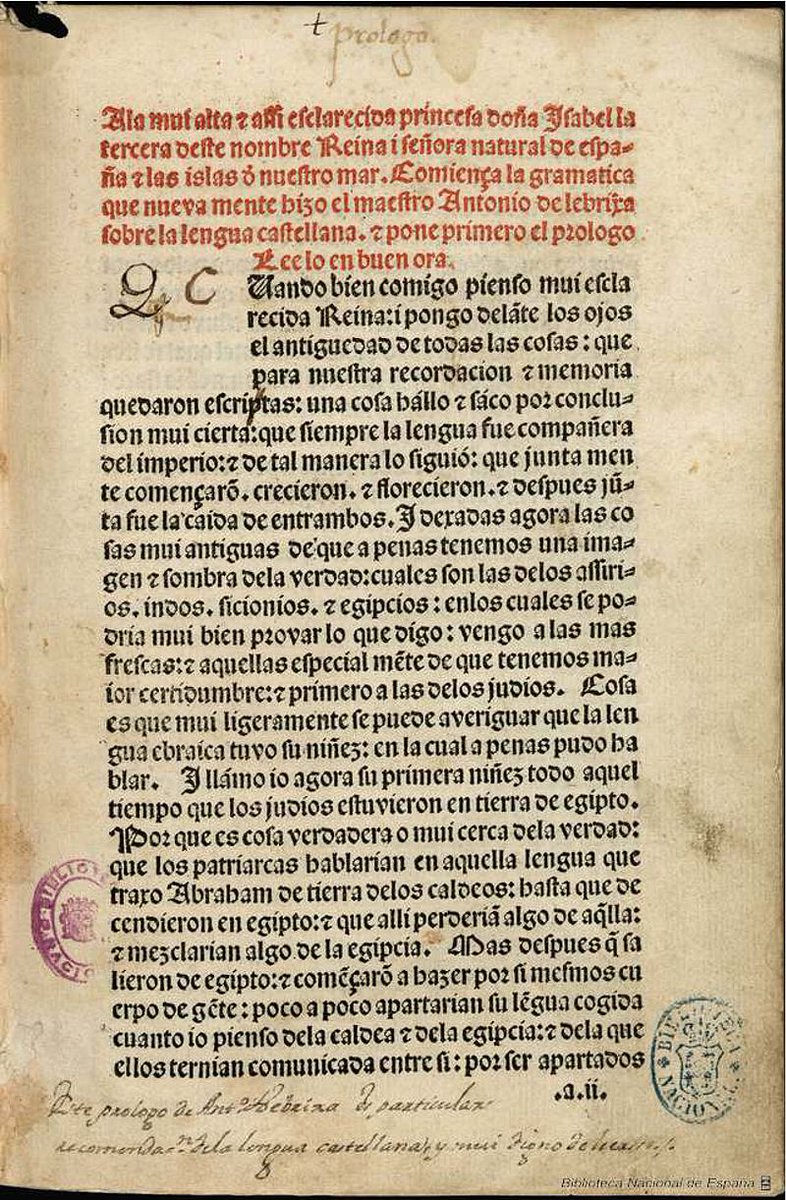 prologo.
Ala mui alta ⁊ assi esclarecida princesa doña Isabel la
tercera deste nombre Reina i señora natural de espa-
ña ⁊ las islas d̃ nuestro mar. Comiença la gramatica
que nueva mente hizo el maestro Antonio de lebrixa
sobre la lengua castellana. ⁊ pone primero el prologo
Lee lo en buen ora.
C Uando bien comigo pienso mui escla
recida Reina: i pongo delãte los ojos
el antiguedad de todas las cosas: que
para nuestra recordacion ⁊ memoria
quedaron escriptas: una cosa hállo ⁊ sáco por conclu-
sion mui cierta: que siempre la lengua fue compañera
del imperio: ⁊ de tal manera lo siguió: que junta men
te començarõ. crecieron. ⁊ florecieron. ⁊ despues jũ-
ta fue la caida de entrambos. I dexadas agora las co
sas mui antiguas de que a penas tenemos una ima-
gen ⁊ sombra dela verdad: cuales son las delos assiri-
os. indos. sicionios. ⁊ egipcios: enlos cuales se po-
dria mui bien provar lo que digo: vengo a las mas
frescas: ⁊ aquellas especial mẽte de que tenemos ma-
ior certidumbre: ⁊ primero a las delos judios. Cosa
es que mui ligeramente se puede averiguar que la len
gua ebraica tuvo su niñez: en la cual a penas pudo ha
blar. I llámo io agora su primera niñez todo aquel
tiempo que los judios estuvieron en tierra de egipto.
Por que es cosa verdadera o mui cerca dela verdad:
que los patriarcas hablarian en aquella lengua que
traxo Abraham de tierra delos caldeos: hasta que de
cendieron en egipto: ⁊ que alli perderiã algo de aq̃lla:
⁊ mezclarian algo de la egipcia. Mas despues q̃ sa
lieron de egipto: ⁊ comẽçarõ a hazer por si mesmos cu
erpo de gẽte: poco a poco apartarian su lẽgua cogida
cuanto io pienso dela caldea ⁊ dela egipcia: ⁊ dela que
ellos ternian comunicada entre si: por ser apartados
.a.ii.
Este prologo de Antº. Nebrixa es particular
recomendaⁿ. de la lengua castellana, y mui digno de
Biblioteca Nacional de España